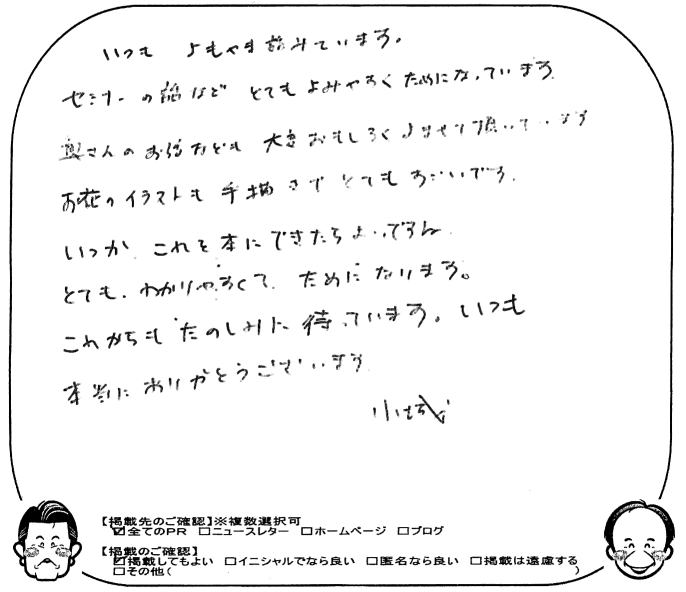 いつも よもやま読みています。
セミナーの話など とてもよみやすく ためになっています
奥さんのお話なども 大変おもしろく よませて頂いています
お花のイラストも 手描きで とてもすごいです。
いつか これを本にできたらよいですね
とても、わかりやすくて、ためになります。
これからも たのしみに 待っています。いつも
本当に ありがとうございます
【掲載先のご確認】※複数選択可
☑全てのPR □ニュースレター □ホームページ □ブログ
【掲載のご確認】
☑掲載してもよい □イニシャルでなら良い □匿名なら良い □掲載は遠慮する
□その他( )